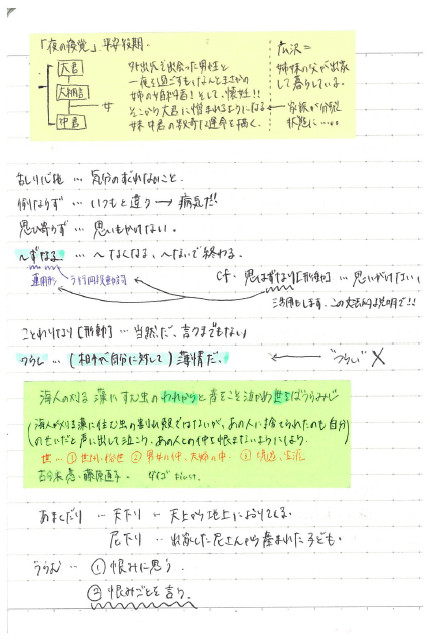 「夜の寝覚」平安後期.
大君
大納言
女
中君
外出先で出会った男性と
一夜を過ごすもなんとまさかの
姉の婚約者！そして、懐妊!!
そこから大君に憎まれるようになる
妹 中君の数奇な運命を描く.
広沢＝
姉妹の父が出家
して暮らしている.
家族が分裂
状態に……
… 気分のすぐれないこと.
例ならず … いつもと違う → 病気だ!
思ひ寄らず … 思いもかけない.
〜ずなる … 〜なくなる、〜ないで終わる.
連用形 ラ行四段動詞
cf. 思はずなり[形動] … 思いがけない,
ことわりなり[形動] … 当然だ、言うまでもない
つらし … (相手が自分に対して)薄情だ. ← "つらい" X
海人の刈る 藻にすむ虫の われからと 音をこそ泣かめ 世をばうらみじ
(海人が刈る藻に住む虫の割れ殻ではないが、あの人に捨てられたのも自分
のせいだと声に出して泣こう、あの人との仲を恨まないようにしよう.)
世… ① 世間・俗世 ② 男女の仲、夫婦の仲 ③ 境遇、生涯
古今集 恋・藤原直子.
あまくだり … 天下り … 天上から地上におりてくる.
尼下り … 出家した尼さんから産まれた子ども.
うらむ … ① 恨みに思う.
② 恨みごとを言う.